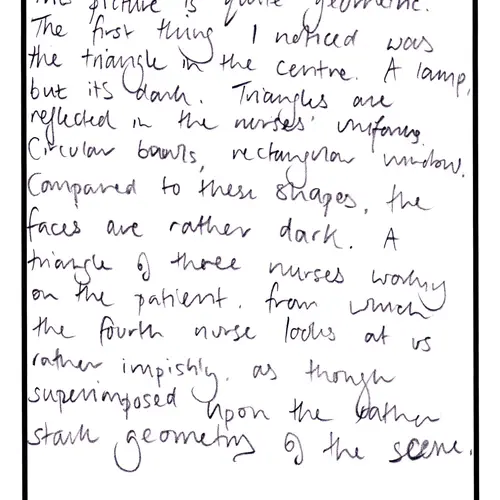 The picture is quite geometric.
The first thing I noticed was
the triangle in the centre. A lamp,
but its dark. Triangles are
reflected in the nurses' uniforms.
Circular bowls, rectangular window.
Compared to these shapes, the
faces are rather dark. A
triangle of three nurses working
on the patient. from which
the fourth nurse looks at us
rather impishly. as though
superimposed upon the rather
stark geometry of the scene.